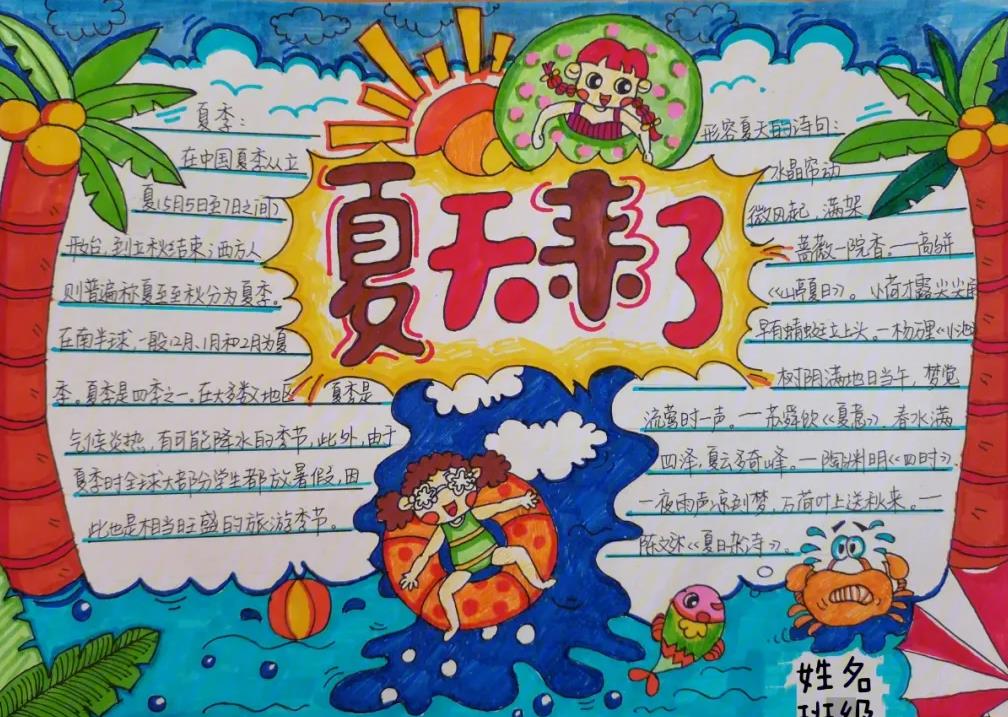 夏天来了
夏季：
在中国夏季从立
夏（5月5日至7日之间）
开始，到立秋结束；西方人
则普遍称夏至至秋分为夏季。
在南半球，一般12月、1月和2月为夏
季。夏季是四季之一。在大多数地区 夏季是
气候炎热，有可能降水的季节，此外，由于
夏季时全球大部分学生都放暑假，因
此也是相当旺盛的旅游季节。
形容夏天的诗句：
水晶帘动
微风起，满架
蔷薇一院香。——高骈
《山亭夏日》。小荷才露尖尖角
早有蜻蜓立上头。—杨万里《小池
树阴满地日当午，梦觉
流莺时一声。——苏舜钦《夏意》。春水满
四泽，夏云多奇峰。—陶渊明《四时》.
一夜雨声凉到梦，万荷叶上送秋来。—
陈文述《夏日杂诗》。
姓名
班级